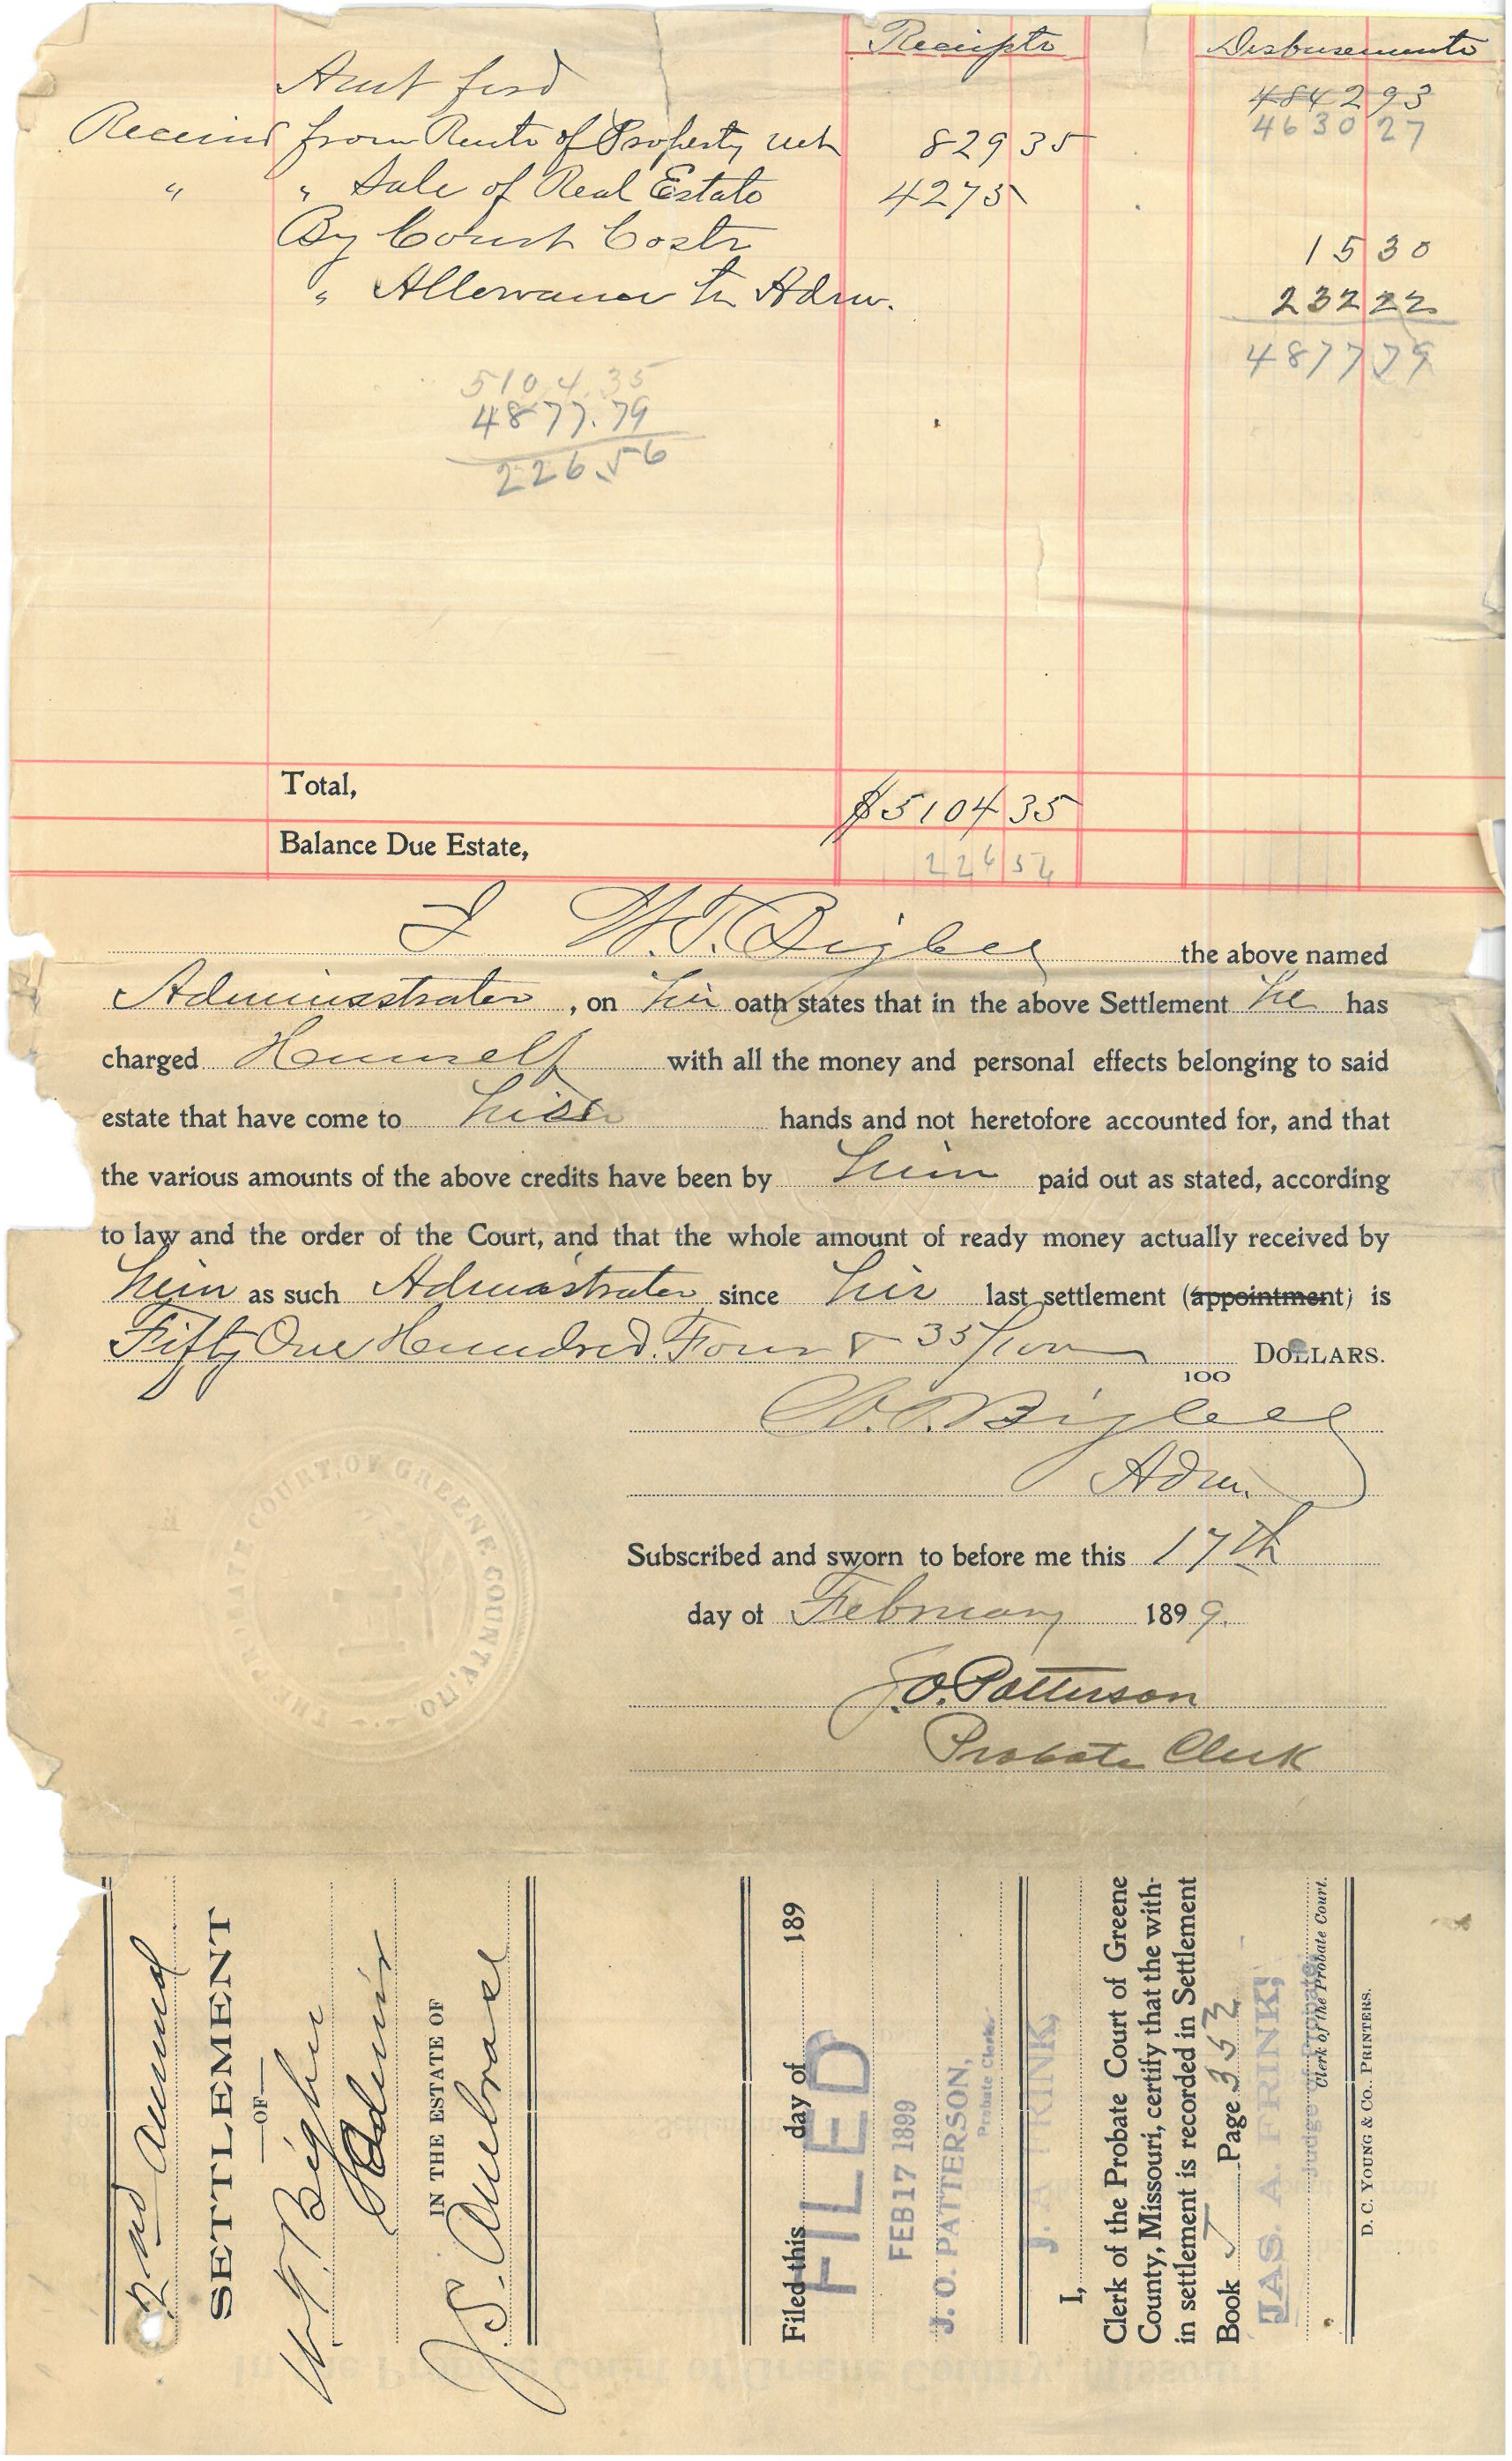 Receipts Disbursements
Amt ford 484293
463027
Received from Rents of Property net 829 35
" " Sale of Real Estate 4275
By Court Costs 15 30
" Allowance to Adm. 232 22
4877 79
5104.35
4877.79
226.56
Total, $5104 35
Balance Due Estate, 226 56
I W.T. Bigbee the above named
Administrator, on his oath states that in the above Settlement he has
charged Himself with all the money and personal effects belonging to said
estate that have come to his hands and not heretofore accounted for, and that
the various amounts of the above credits have been by him paid out as stated, according
to law and the order of the Court, and that the whole amount of ready money actually received by
him as such Admnistrator since his last settlement (appointment) is
Fifty One Hundred. Four & 35/100 100 DOLLARS.
W.T. Bigbee
Adm.
THE PROBATE COURT OF GREENE COUNTY, MO.
Subscribed and sworn to before me this 17th
day of February 1899.
J.O. Patterson
Probate Clerk
2nd Annual
SETTLEMENT
—OF—
W.T. Bigbee
Admr
IN THE ESTATE OF
J.S. Ambrose
Filed this day of 189
FILED
FEB 17 1899
J. O. PATTERSON,
Probate Clerk.
J. A. FRINK,
I,
Clerk of the Probate Court of Greene
County, Missouri, certify that the with-
in settlement is recorded in Settlement
Book Page 353
JAS. A. FRINK,
Judge of Probate.
Clerk of the Probate Court.
D. C. YOUNG & CO., PRINTERS.